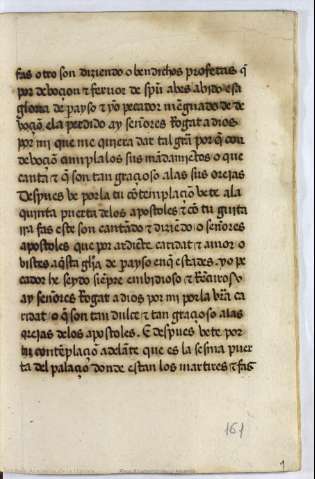 fas otro son diziendo o bendichos profetas q̄
por deuoçion & feruor de spū aues abido esa
gloria de payso & yo pecador mēguado de de
voçiō ela perdido ay señores Rogat a dios
por mi que me quiera dar tal grā por q̄ con
deuoçiō cumpla los sus mādamiētos o que
canta & q̄ son tan graçioso alas sus orejas
Despues be por la tu cōtemplaciō bete ala
quinta puerta delos apostoles & cō tu guita
rra fas este son cantādo & diziēdo o señores
apostoles que por ardiēte caridat & amor o
bistes aq̄sta glīa de payso enq̄ estades. yo pe
cador he seydo siēpre embidioso &
ay señores Rogat a dios por mi por la vr̄a ca
ridat o q̄ son tan dulce & tan graçioso alas
orejas delos apostoles. E despues bete por
tu contēplaçiō adelāte que es la sesma puer
ta del palaçio donde estan los martires & fas
161